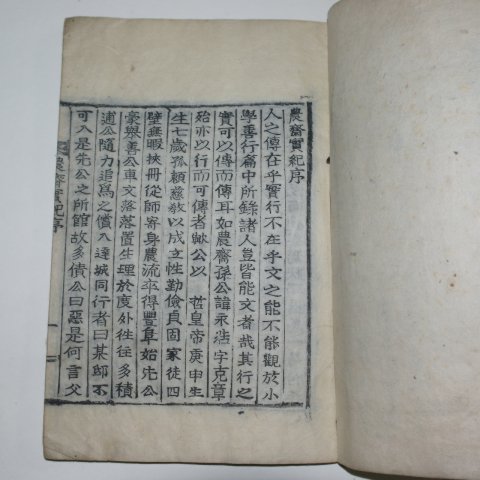 農齋實紀序
人之傳在乎實行不在乎文之能不能觀於小
學善行篇中所錄諸人豈皆能文者哉其行之
實可以傳而傳耳如農齋孫公諱永 字克章
殆亦以行而可傳者歟公以 哲皇帝庚申生
生七歲孤賴慈敎以成立性勤儉貞固家徒四
壁無暇挾冊從師寄身農流卒得豐阜始先公
豪擧善公車文落落置生理於度外往往多積
逋公隨力追爲之償入達城同行者曰某邸不
可入是先公之所館故多債公曰惡是何言父
農齋實紀序